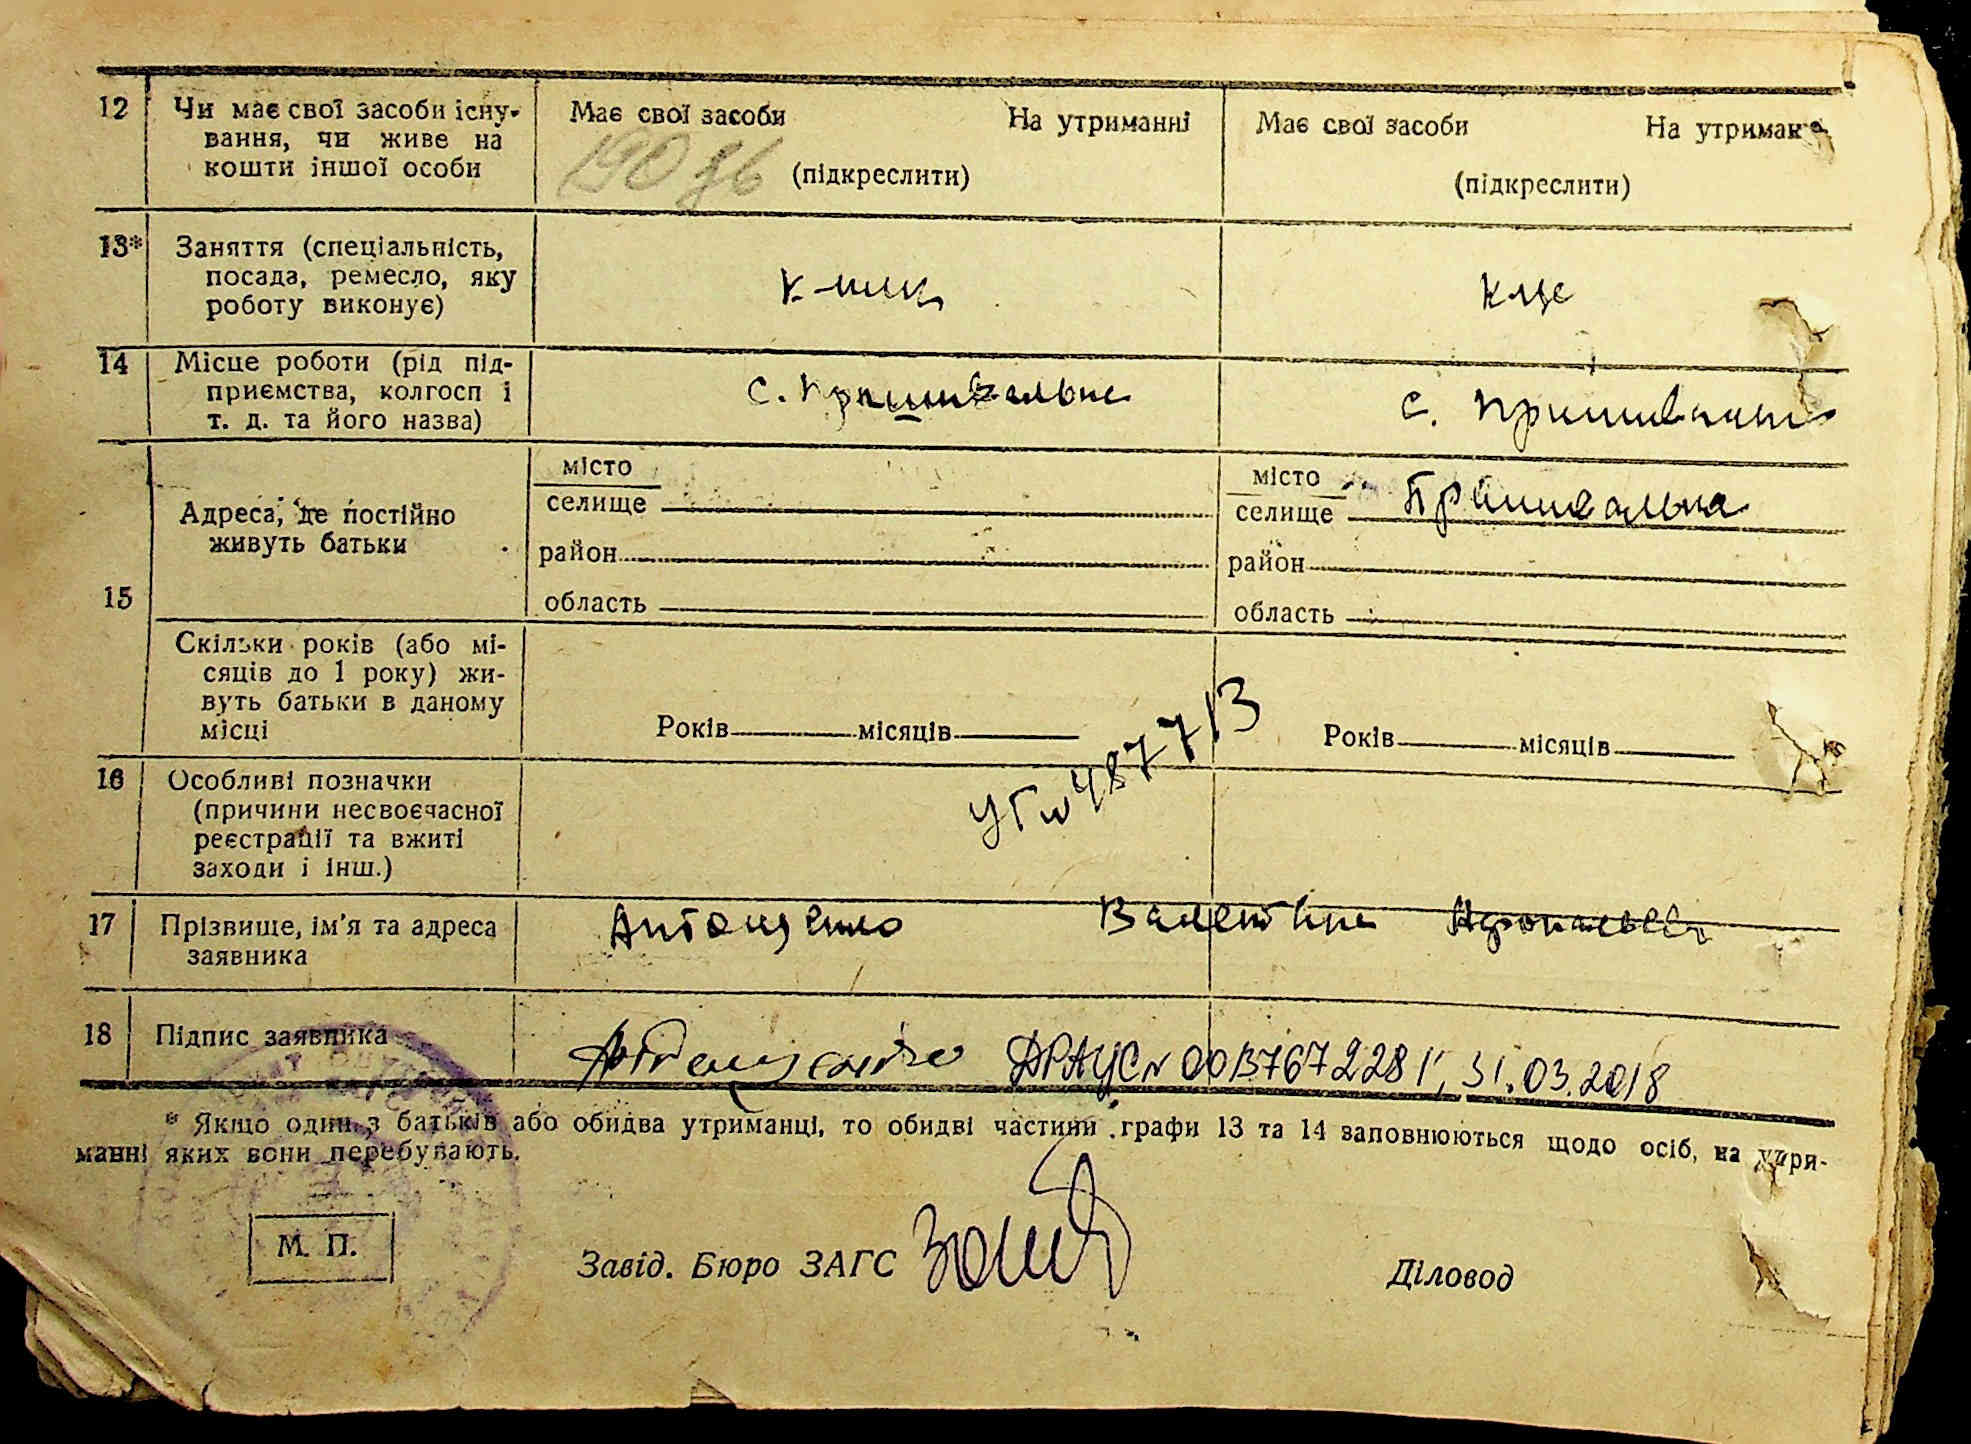 12 Чи має свої засоби існу-
вання, чи живе на
кошти іншої особи
Має свої засоби На утриманні
(підкреслити)
Має свої засоби На утриман
(підкреслити)
13* Заняття (спеціальність,
посада, ремесло, яку
роботу виконує)
14 Місце роботи (рід під-
приємства, колгосп і
т. д. та його назва)
с.
с.
15 Адреса, де постійно
живуть батьки
місто
селище
район
область
місто
селище
район
область
Скільки років (або мі-
сяців до 1 року) жи-
вуть батьки в даному
місці
Років місяців
Років місяців
16 Особливі позначки
(причини несвоєчасної
реєстрації та вжиті
заходи і інш.)
17 Прізвище, ім'я та адреса
заявника
Антощенко Валентина
18 Підпис заявника
Антощенко 00137672281, 31.03.2018
* Якщо один з батьків або обидва утриманці, то обидві частини графи 13 та 14 заповнюються щодо осіб, на утри-
манні яких вони перебувають.
М. П.
Завід. Бюро ЗАГС
Діловод